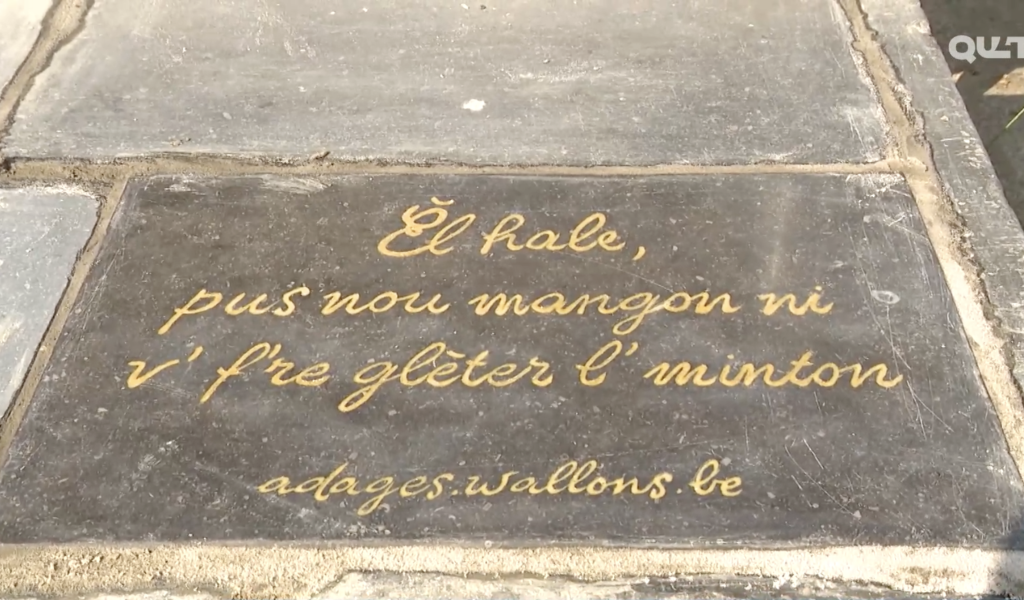 Ĕl hale,
pus nou mangon ni
v' f're glèter l' minton
adages.wallons.be